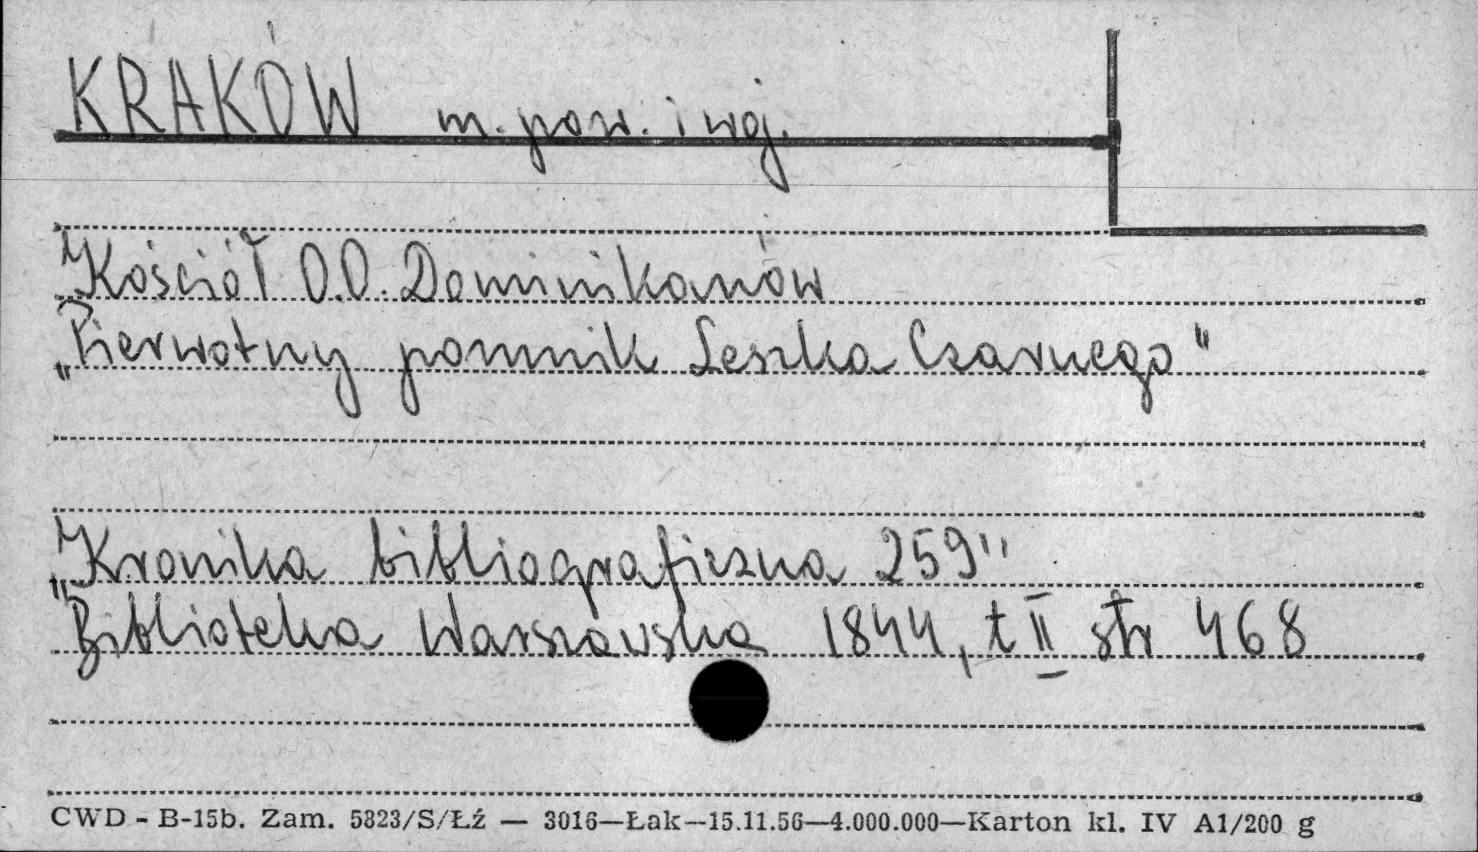 KRAKÓW m. pow. i woj.
Kościół O.O. Dominikanów
„Pierwotny pomnik Leszka Czarnego"
Kronika bibliograficzna 259"
„Biblioteka Warszawska 1844, t II str 468
CWD - B-15b. Zam. 5823/S/Łź — 3016—Łak—15.11.56—4.000.000—Karton kl. IV A1/200 g